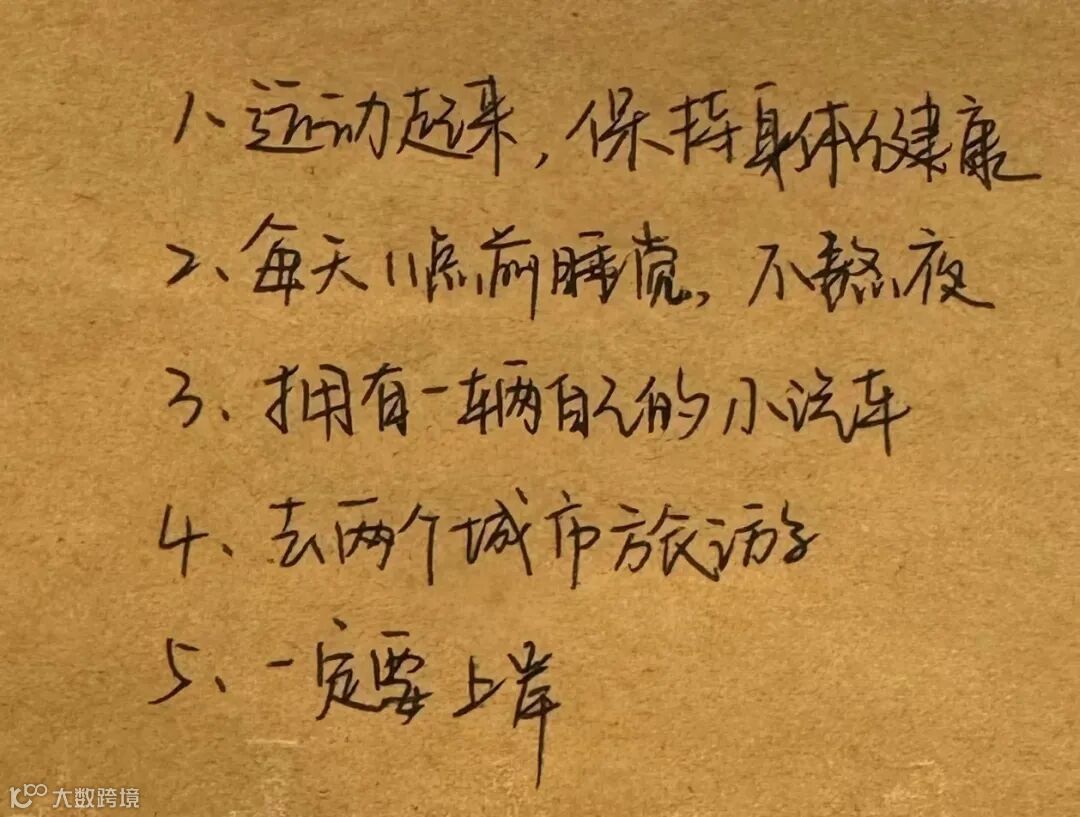 1、运动起来，保持身体的健康
2、每天11点前睡觉，不熬夜
3、拥有一辆自己的小汽车
4、去两个城市旅游
5、一定要上岸
大数跨境